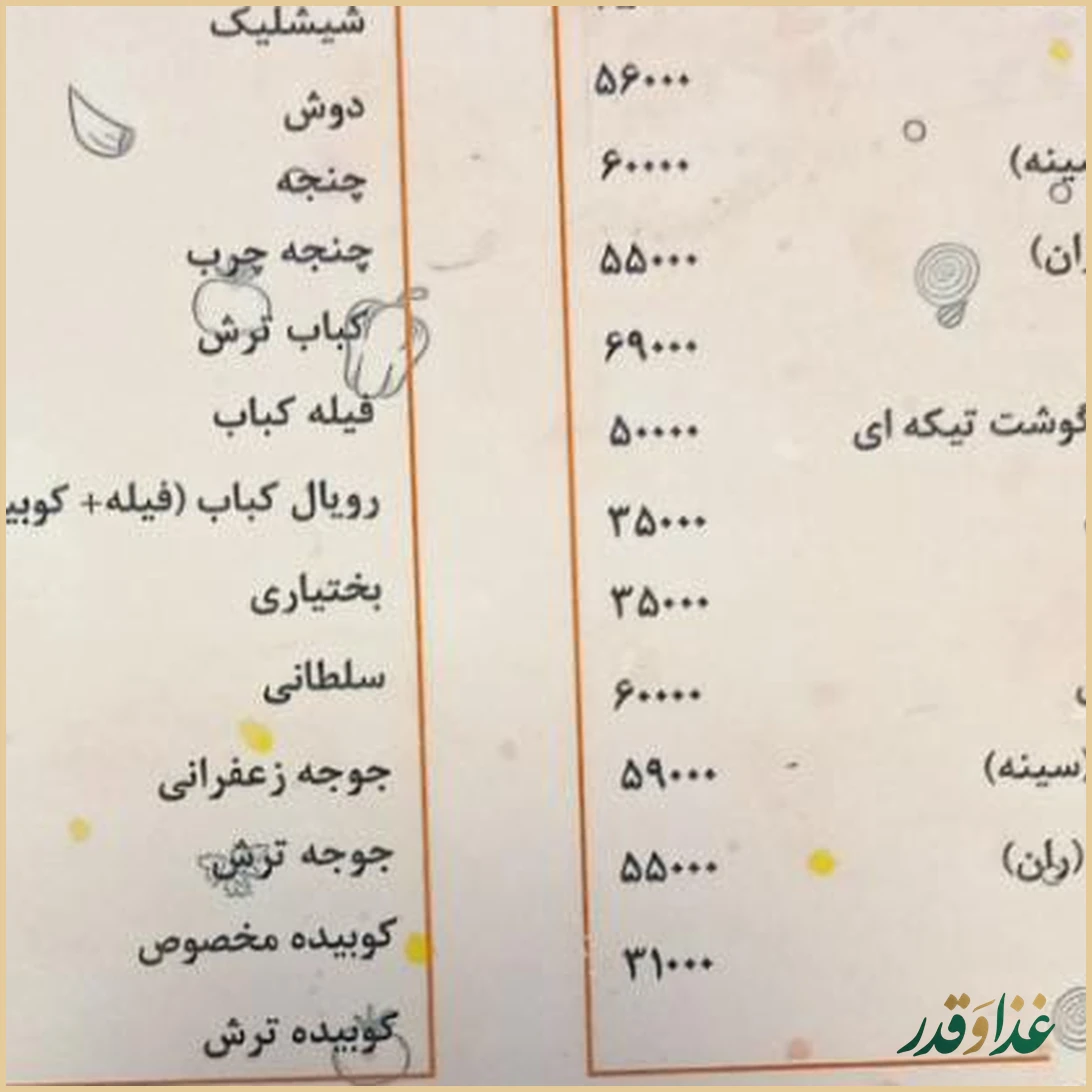 شیشلیک
دوش
چنجه
چنجه چرب
کباب ترش
فیله کباب
رویال کباب (فیله+ کوبی
بختیاری
سلطانی
جوجه زعفرانی
جوجه ترش
کوبیده مخصوص
کوبیده ترش
۵۶۰۰۰
سینه) ۶۰۰۰۰
ران) ۵۵۰۰۰
۶۹۰۰۰
گوشت تیکه ای ۵۰۰۰۰
۳۵۰۰۰
۳۵۰۰۰
۶۰۰۰۰
(سینه) ۵۹۰۰۰
(ران) ۵۵۰۰۰
۳۱۰۰۰
غذا و قدر